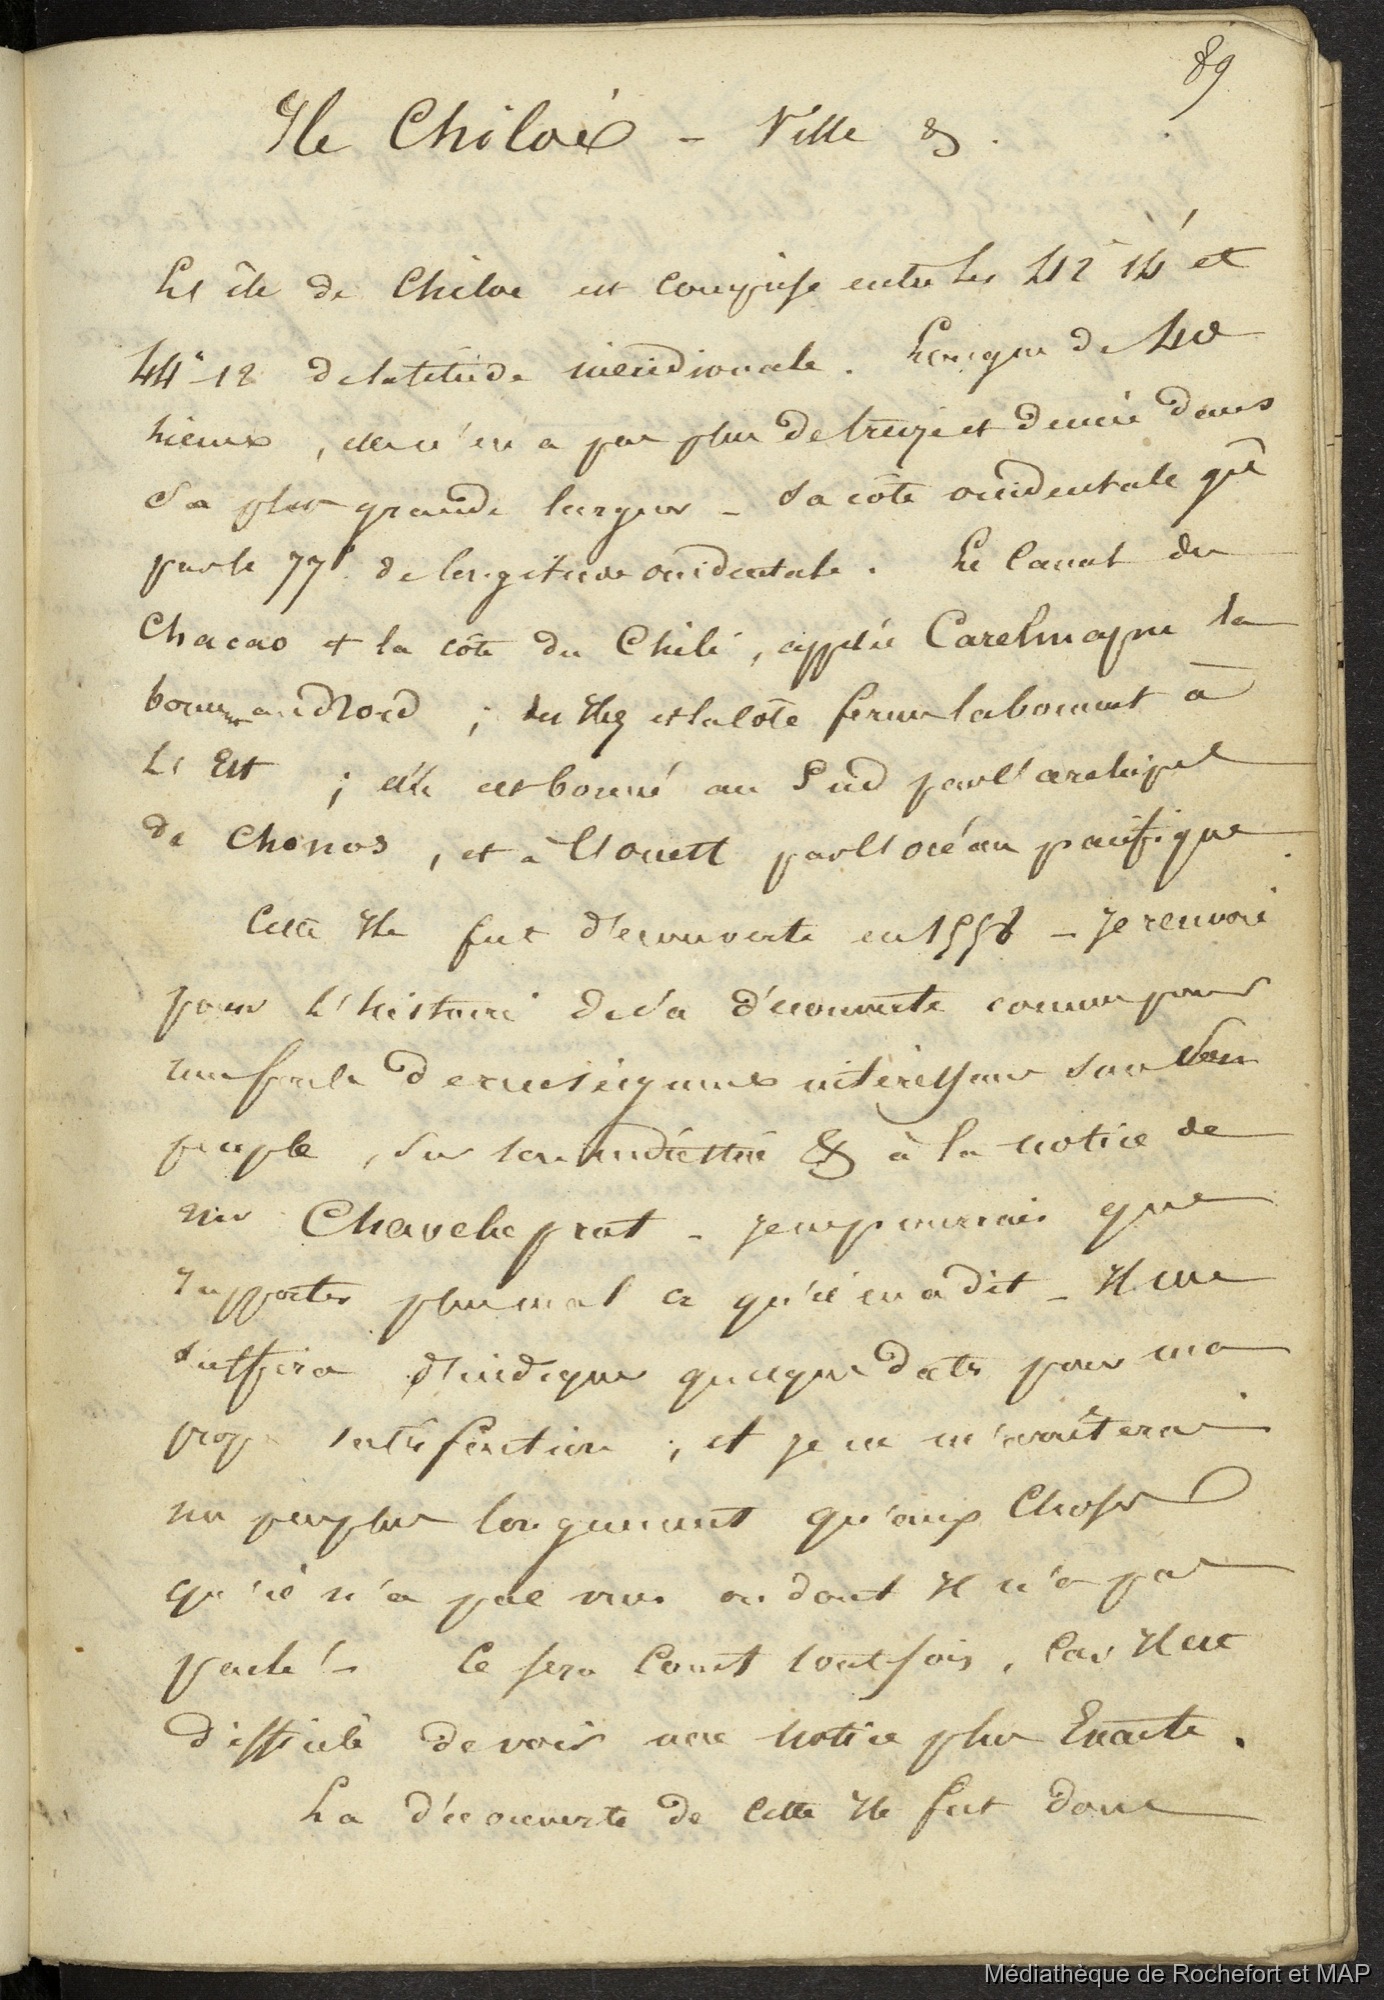 89
Ile Chiloé - Ville &.
L'île de Chiloe est comprise entre les 42° 14' et
44° 12 de latitude méridionale. Longue de 40
lieues, elle n'en a pas plus de treize et demie dans
sa plus grande largeur - Sa côte occidentale gît
par le 77° de longitude occidentale. Le Canal de
Chacao et la côte du Chili, appelée Carelmapu la
bornent au Nord ; des Iles et la côte ferme la bornent à
L'Est ; elle est borné au Sud par l'archipel
de Chonos, et à l'ouest par l'océan pacifique
Cette Ile fut d'écouverte en 1558 - Je renvoie
pour l'histoire de sa d'écouverte comme pour
une foule de renseignemens intéressans sur son
peuple, sur son industrie & à la notice de
mr Chaucheprat - je ne pourrais que
rapporter plus mal ce qu'il en a dit - Il me
suffira d'indiquer quelques dates pour ma
propre satisfaction ; et je ne m'arrêterai
un peu plus longuement qu'aux Choses
qu'il n'a pas vues ou dont Il n'a pas
parlé ! - Ce sera Court toutefois, Car Il est
difficile de voir une notice plus Exacte.
La d'écouverte de cette Ile fut donc
Médiathèque de Rochefort et MAP